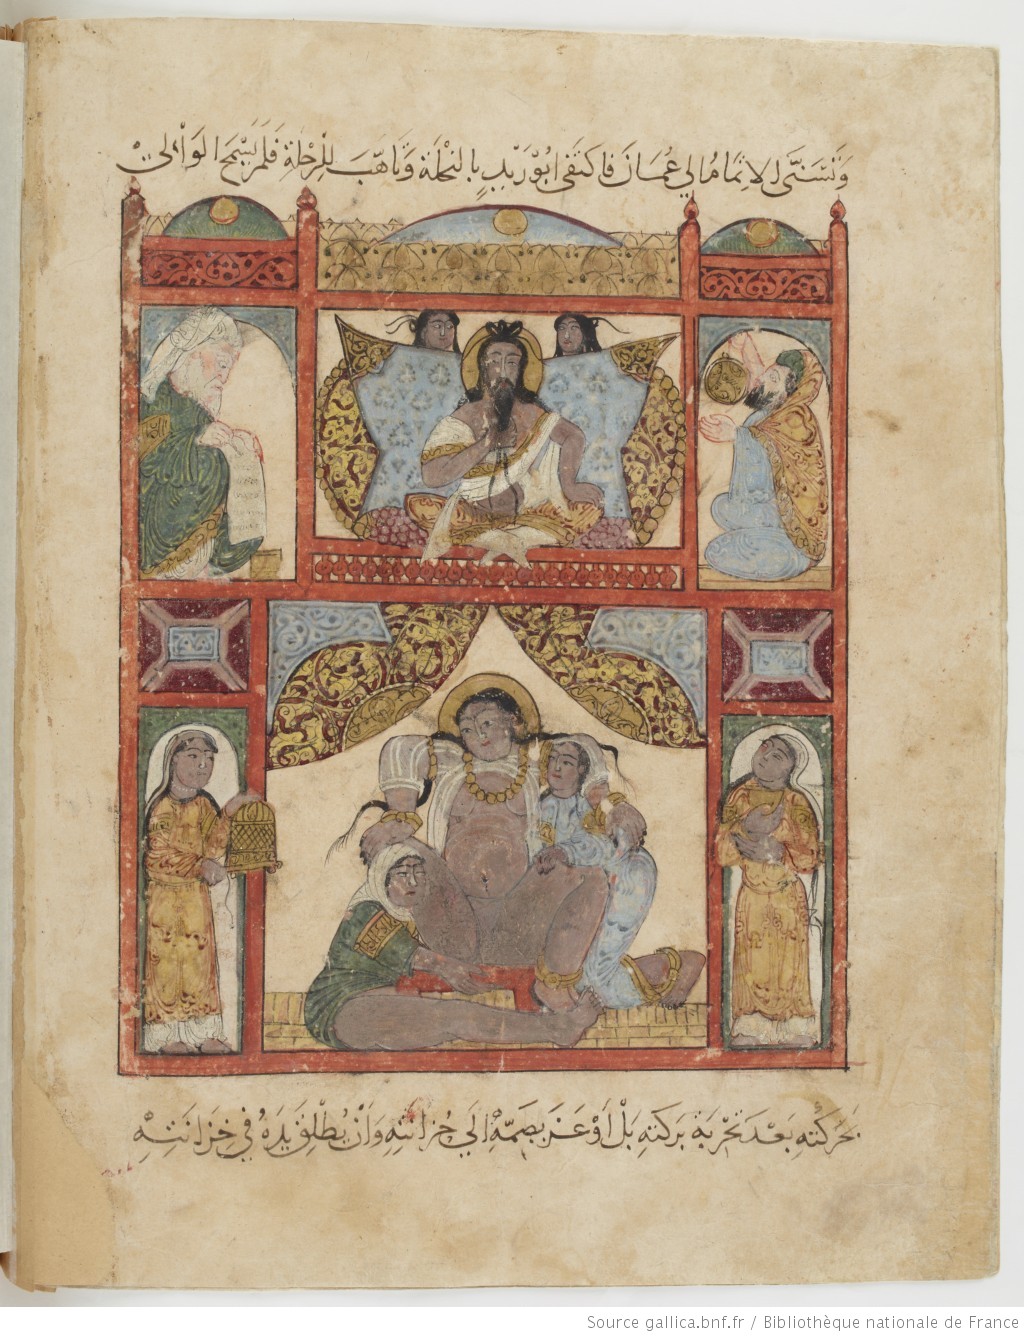 وَتَسَنَّى الاِتمَامُ الي عُمَانَ فَاكتَفى ابُو زَيْدٍ بالنِحْلَة وَتَاهَّبَ لِلرِحْلةِ فَلَم يَسْمَحِ الوَالي
بحَرَكَتِهِ بَعْدَ تَجْرِبَةِ بَرَكَتِهِ بَلْ اَوْعَزَ بِضَمِّهِ اِلَي حُزَانَتِهِ وَاَنْ يُطْلَقَ يَدَهُ في خِزَانَتِهِ
Source gallica.bnf.fr / Bibliothèque nationale de France